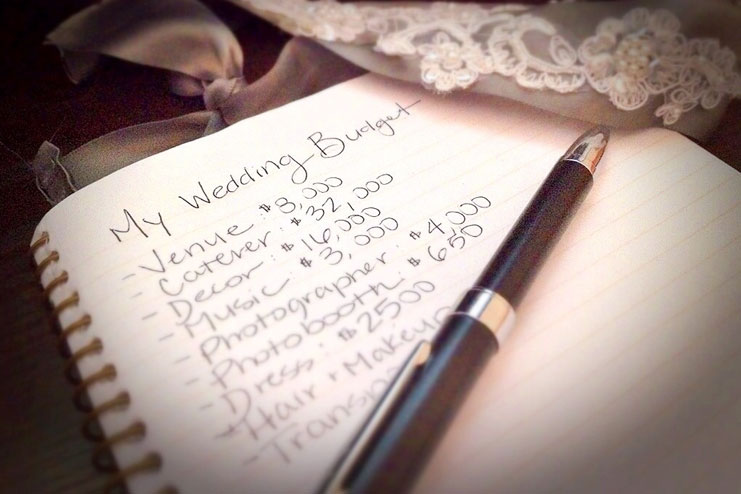 My Wedding Budget
- Venue: $8,000
- Caterer: $32,000
- Decor: $16,000
- Music: $3,000
- Photographer: $4,000
- Photobooth: $650
- Dress: $2500
- Hair + Makeup
-